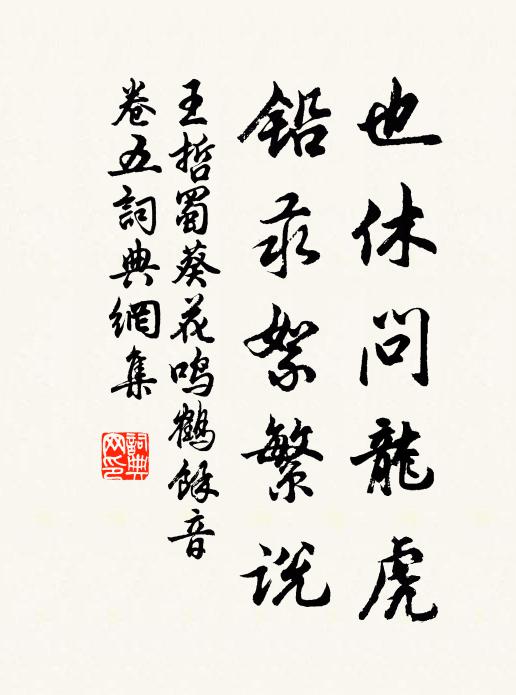 也休問龍虎
鉛汞絮繁說
王哲蜀葵花鳴鶴餘音
卷五詞典網集
詞典網印